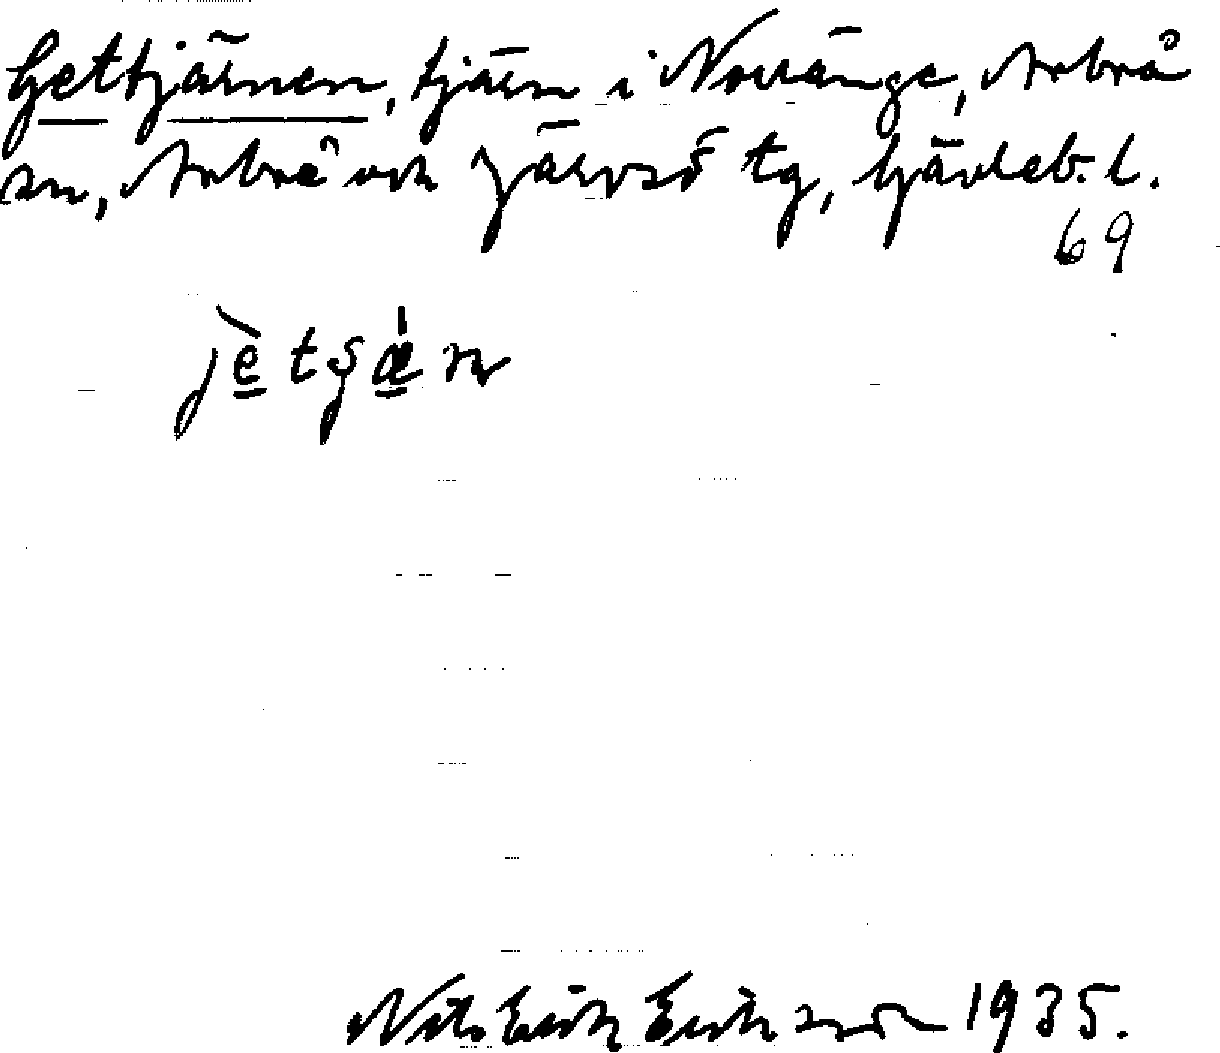 Gettjärnen, tjärn i Norränge, Arbrå
sn, Arbrå och Järvsö tg, Gävleb. l.
69
jètʂǽn
Nils Erik Eriksson 1935.